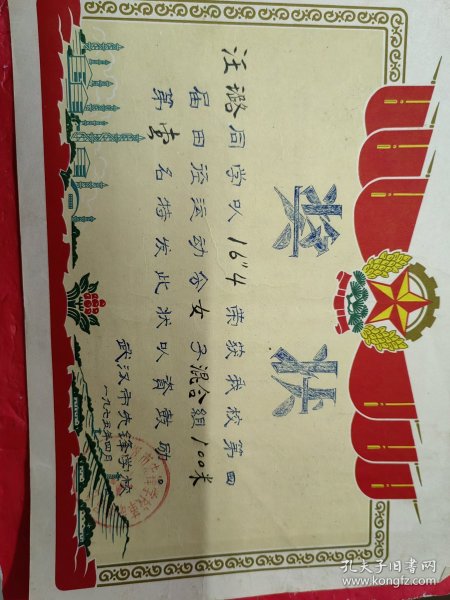 奖状
汪潞同学以16"4荣获我校第四
届田径运动会女子混合组100米
第壹名特发此状以资鼓励。
武汉市先锋学校
一九七五年四月
孔夫子旧书网
www.kongfz.com